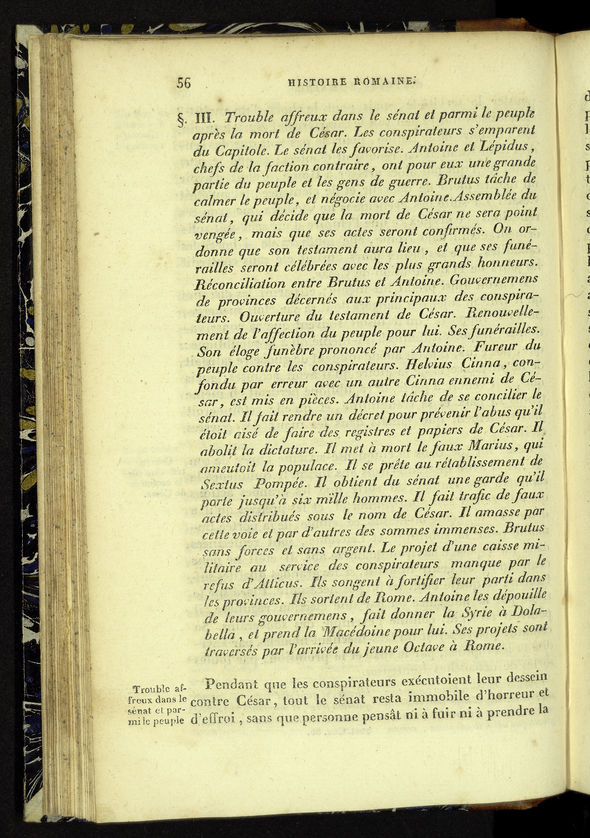 56
HISTOIRE ROMAINE.
§. III. Trouble affreux dans le sénat et parmi le peuple
après la mort de César. Les conspirateurs s'emparent
du Capitole. Le sénat les favorise. Antoine et Lépidus,
chefs de la faction contraire, ont pour eux une grande
partie du peuple et les gens de guerre. Brutus tâche de
calmer le peuple, et négocie avec Antoine. Assemblée du
sénat, qui décide que la mort de César ne sera point
vengée, mais que ses actes seront confirmés. On or-
donne que son testament aura lieu, et que ses funé-
railles seront célébrées avec les plus grands honneurs.
Réconciliation entre Brutus et Antoine. Gouvernemens
de provinces décernés aux principaux des conspira-
teurs. Ouverture du testament de César. Renouvelle-
ment de l'affection du peuple pour lui. Ses funérailles.
Son éloge funèbre prononcé par Antoine. Fureur du
peuple contre les conspirateurs. Helvius Cinna, con-
fondu par erreur avec un autre Cinna ennemi de Cé-
sar, est mis en pièces. Antoine tâche de se concilier le
sénat. Il fait rendre un décret pour prévenir l'abus qu'il
étoit aisé de faire des registres et papiers de César. Il
abolit la dictature. Il met à mort le faux Marius, qui
ameutoit la populace. Il se prête au rétablissement de
Sextus Pompée. Il obtient du sénat une garde qu'il
porte jusqu'à six mille hommes. Il fait trafic de faux
actes distribués sous le nom de César. Il amasse par
cette voie et par d'autres des sommes immenses. Brutus
sans forces et sans argent. Le projet d'une caisse mi-
litaire au service des conspirateurs manque par le
refus d'Atticus. Ils songent à fortifier leur parti dans
les provinces. Ils sortent de Rome. Antoine les dépouille
de leurs gouvernemens, fait donner la Syrie à Dola-
bella, et prend la Macédoine pour lui. Ses projets sont
traversés par l'arrivée du jeune Octave à Rome.
Trouble af-
freux dans le
sénat et par-
mi le peuple
Pendant que les conspirateurs exécutoient leur dessein
contre César, tout le sénat resta immobile d'horreur et
d'effroi, sans que personne pensât ni à fuir ni à prendre la